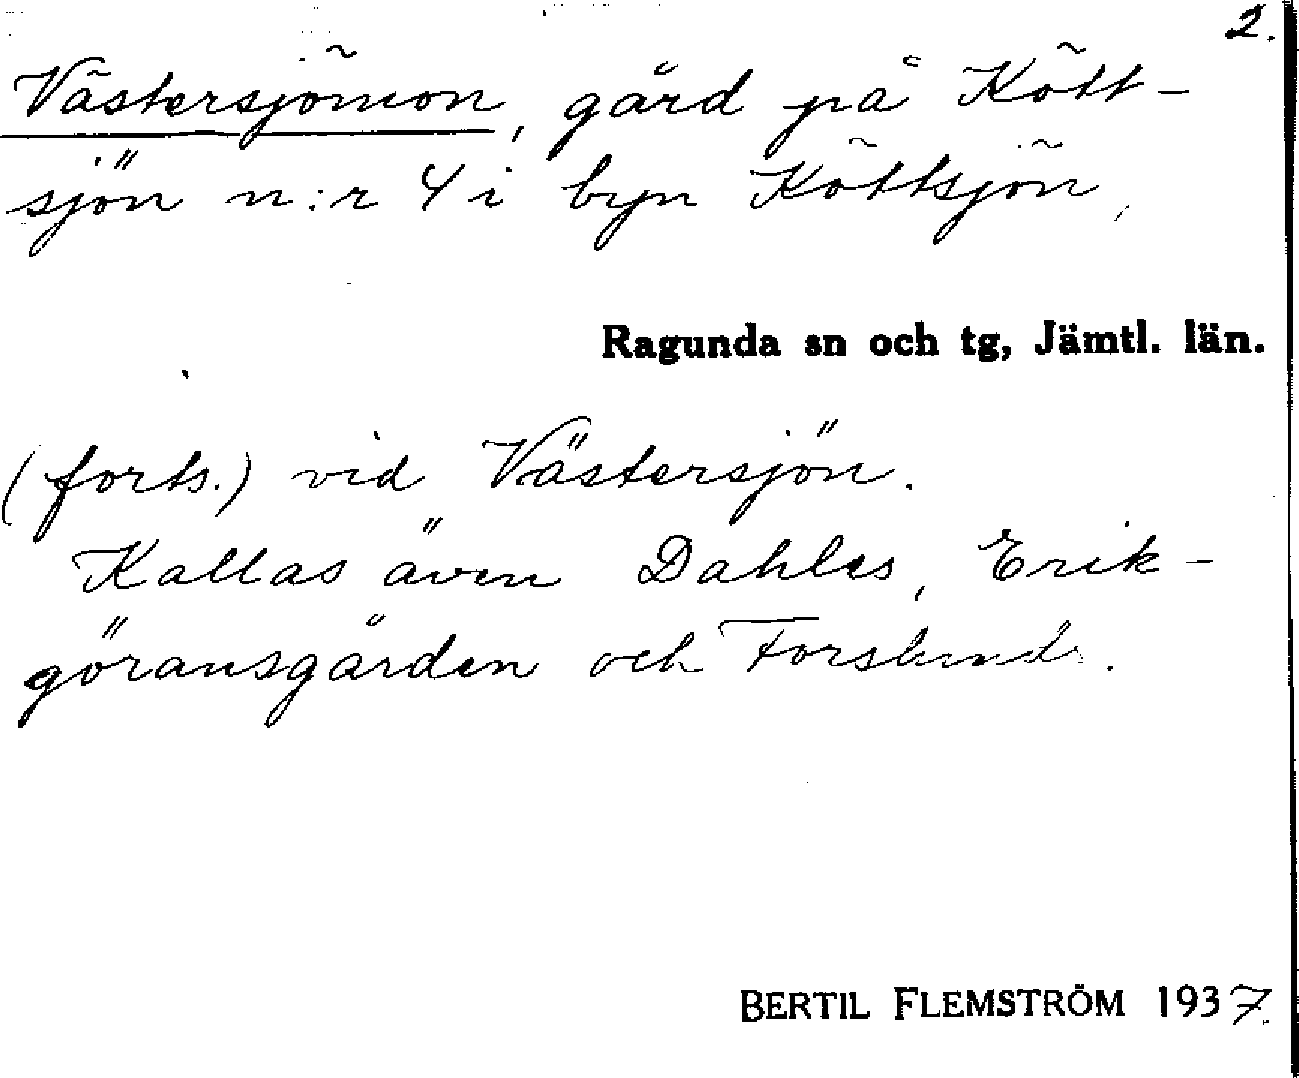 2.
Västersjömon, gård på Kött-
sjön n:r 4 i byn Köttsjön,
Ragunda sn och tg, Jämtl. län.
(forts.) vid Västersjön.
Kallas även Dahles, Erik-
göransgården och Forslunds.
BERTIL FLEMSTRÖM 1937.